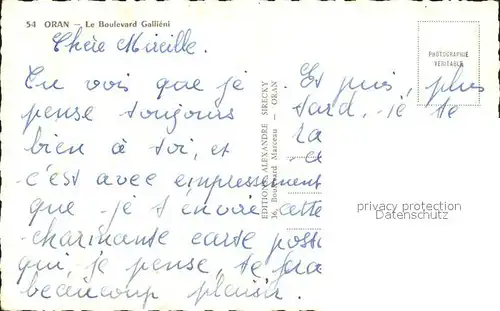 54 ORAN — Le Boulevard Galliéni
Chère Mireille.
Tu vois que je
pense toujours
bien à toi, et
c'est avec empressement
que je t'envoie cette
charmante carte posta
qui, je pense, te fera
beaucoup plaisir.
EDITIONS ALEXANDRE SIRECKY
36, Boulevard Marceau — ORAN
Et puis, plus
tard, je te
ra
ce
PHOTOGRAPHIE
VÉRITABLE
privacy protection
Datenschutz